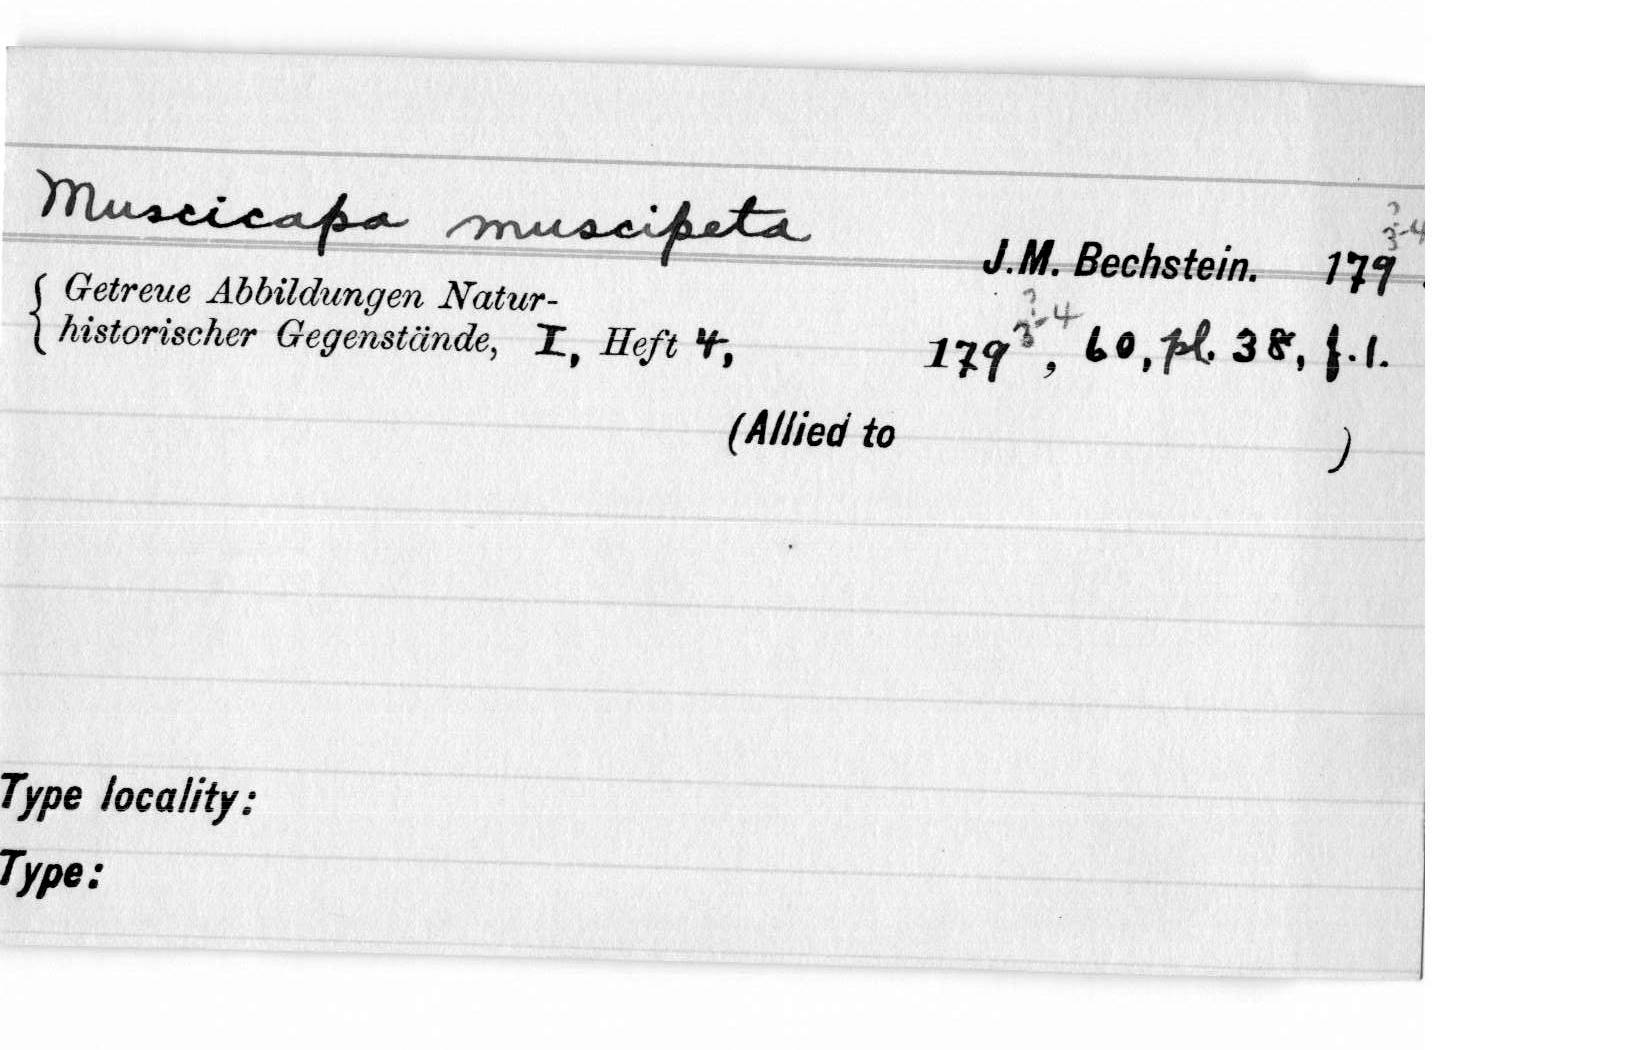 Muscicapa muscipeta
J.M. Bechstein. 179 3?-4
{ Getreue Abbildungen Natur-
historischer Gegenstände, I, Heft 4, 179 3?-4, 60, pl. 38, f. 1.
(Allied to )
Type locality:
Type: